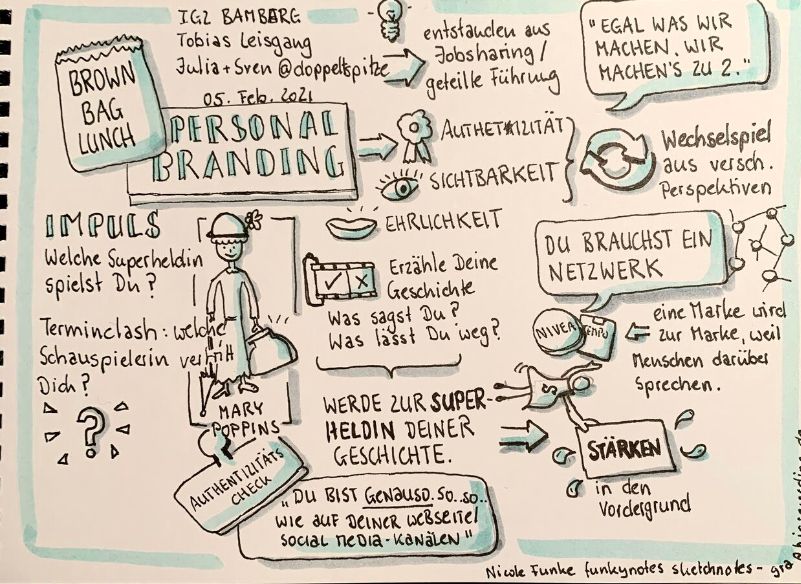 BROWN
BAG
LUNCH
IGZ BAMBERG
Tobias Leisgang
Julia + Sven @doppeltspitze
05. Feb. 2021
PERSONAL
BRANDING
entstanden aus
Jobsharing/
geteilte Führung
"EGAL WAS WIR
MACHEN. WIR
MACHEN'S ZU 2."
AUTHETIZITÄT
SICHTBARKEIT
EHRLICHKEIT
Wechselspiel
aus versch.
Perspektiven
IMPULS
Welche Superheldin
spielst Du?
Terminclash: welche
Schauspielerin vertritt
Dich?
?
MARY
POPPINS
AUTHENTIZITÄTS
CHECK
Erzähle Deine
Geschichte
Was sagst Du?
Was lässt Du weg?
DU BRAUCHST EIN
NETZWERK
NIVEA
TEMPO
eine Marke wird
zur Marke, weil
Menschen darüber
sprechen.
WERDE ZUR SUPER-
HELDIN DEINER
GESCHICHTE.
S
STÄRKEN
in den
Vordergrund
"DU BIST GENAUSO. SO.. SO..
WIE AUF DEINER WEBSEITE/
SOCIAL MEDIA-KANÄLEN"
Nicole Funke funkynotes sketchnotes -